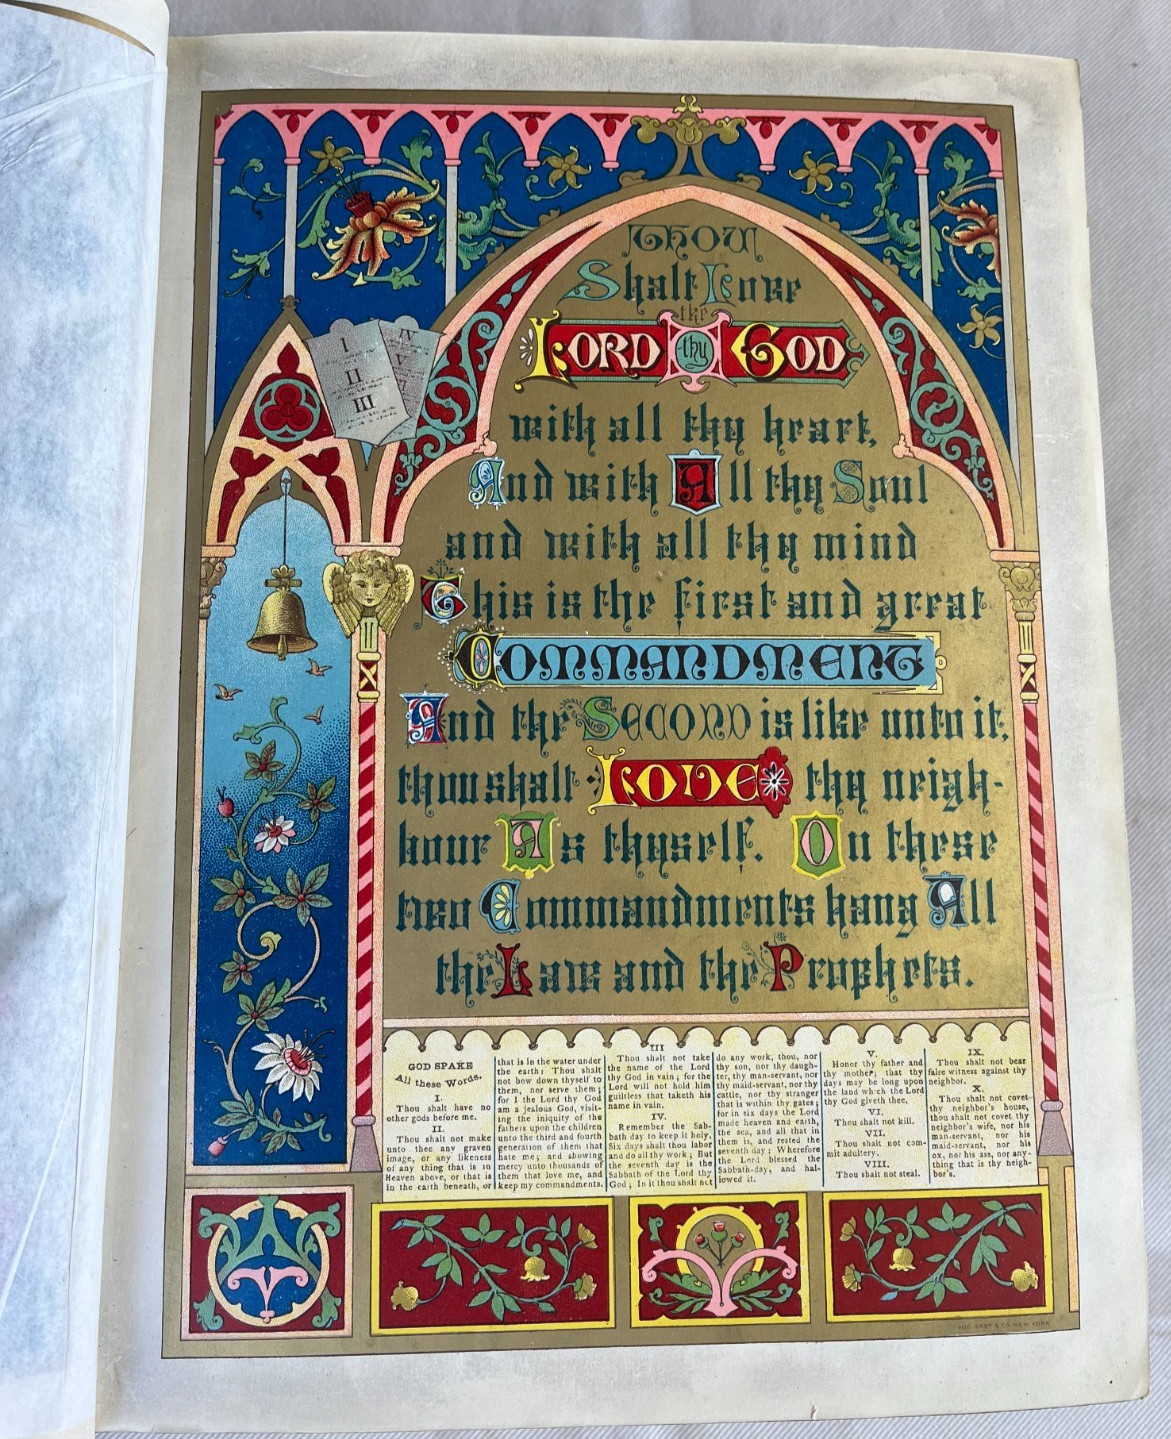 THOU
Shalt Love
the
LORD thy GOD
with all thy heart,
And with All thy Soul
and with all thy mind
This is the first and great
COMMANDMENT
And the SECOND is like unto it,
thou shalt LOVE thy neigh-
bour As thyself. On these
two Commandments hang All
the Law and the Prophets.
I
II
III
IV
V
GOD SPAKE
All these Words.
I.
Thou shalt have no
other gods before me.
II.
Thou shalt not make
unto thee any graven
image, or any likeness
of any thing that is in
Heaven above, or that is
in the earth beneath, or
that is in the water under
the earth: Thou shalt
not bow down thyself to
them, nor serve them;
for I the Lord thy God
am a jealous God, visit-
ing the iniquity of the
fathers upon the children
unto the third and fourth
generation of them that
hate me; and showing
mercy unto thousands of
them that love me, and
keep my commandments.
III
Thou shalt not take
the name of the Lord
thy God in vain; for the
Lord will not hold him
guiltless that taketh his
name in vain.
IV.
Remember the Sab-
bath day to keep it holy.
Six days shalt thou labor
and do all thy work; But
the seventh day is the
Sabbath of the Lord thy
God; In it thou shalt not
do any work, thou, nor
thy son, nor thy daugh-
ter, thy man-servant, nor
thy maid-servant, nor thy
cattle, nor thy stranger
that is within thy gates;
for in six days the Lord
made heaven and earth,
the sea, and all that in
them is, and rested the
seventh day; Wherefore
the Lord blessed the
Sabbath-day, and hal-
lowed it.
V.
Honor thy father and
thy mother; that thy
days may be long upon
the land which the Lord
thy God giveth thee.
VI.
Thou shalt not kill.
VII.
Thou shalt not com-
mit adultery.
VIII.
Thou shalt not steal.
IX.
Thou shalt not bear
false witness against thy
neighbor.
X.
Thou shalt not covet
thy neighbor's house,
thou shalt not covet thy
neighbor's wife, nor his
man-servant, nor his
maid-servant, nor his
ox, nor his ass, nor any-
thing that is thy neigh-
bor's.
& CO. NEW YORK